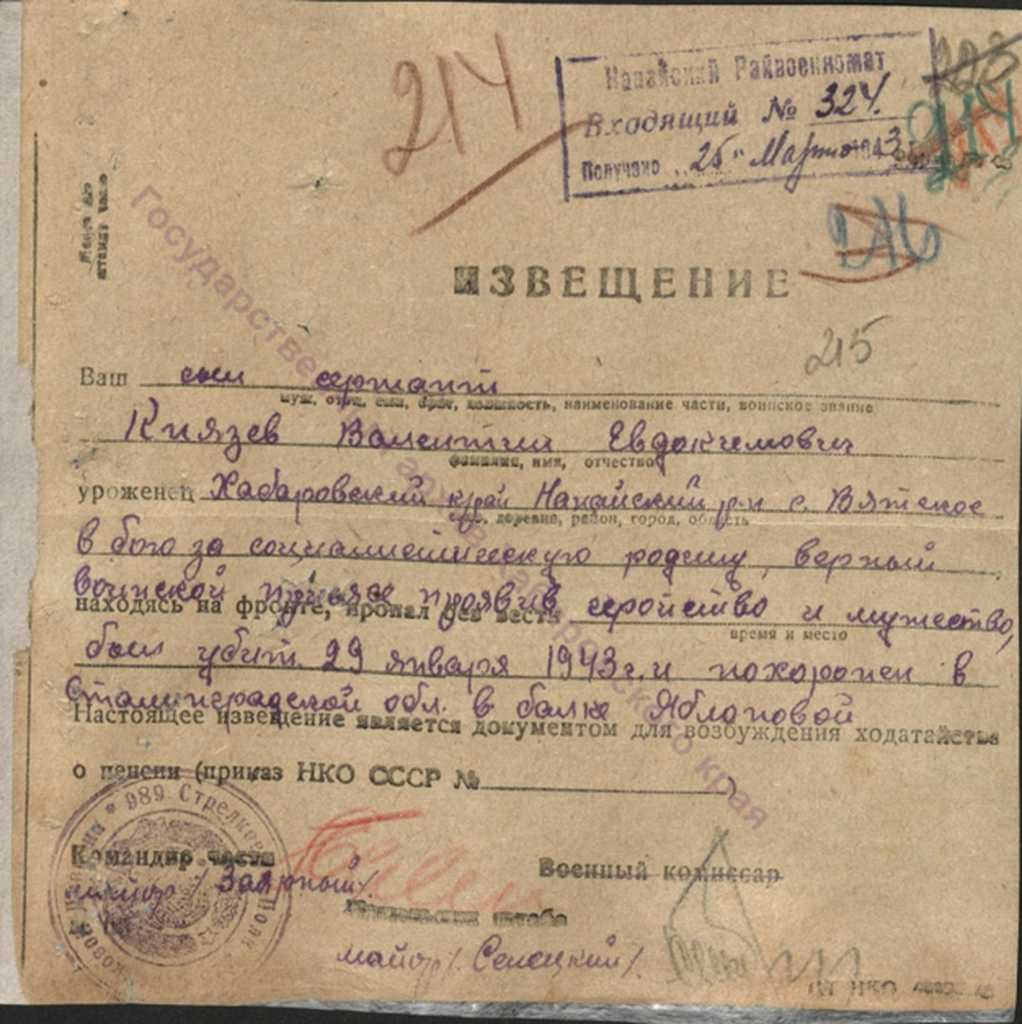 214
Нанайский Райвоенкомат
Входящий № 324.
Получено "25" Марта 1943
214
216
Место для
штампа части
ИЗВЕЩЕНИЕ
215
Ваш сын сержант
муж, отец, сын, брат, должность, наименование части, воинское звание
Князев Валентин Евдокимович
фамилия, имя, отчество
уроженец Хабаровский край Нанайский р-н с. Вятское
деревня, район, город, область
в бою за социалистическую родину, верный
воинской присяге проявив геройство и мужество,
находясь на фронте, пропал без вести
время и место
был убит 29 января 1943 г. и похоронен в
Сталинградской обл. в балке Яблоновой
Настоящее извещение является документом для возбуждения ходатайства
о пенсии (приказ НКО СССР № )
989 Стрелковый Полк
Командир части
майор /Заярный/
Военный комиссар
Начальник штаба
майор /Селецкий/.
Государственный архив Хабаровского края